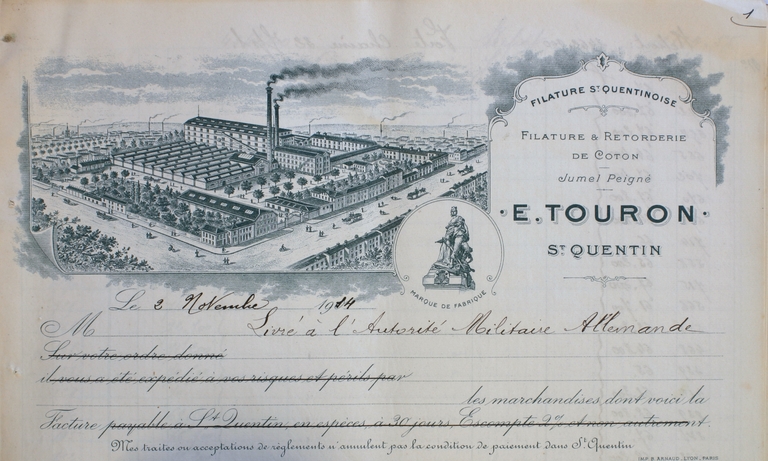 1
FILATURE ST QUENTINOISE
FILATURE & RETORDERIE
DE COTON
Jumel Peigné
· E. TOURON ·
ST QUENTIN
MARQUE DE FABRIQUE
Le 2 Novembre 1914
M Livré à l'Autorité Militaire Allemande
Sur votre ordre donné
il vous a été expédié à vos risques et périls par
les marchandises dont voici la
Facture payable à St Quentin, en espèces, à 30 jours Escompte 2% et non autrement.
Mes traites ou acceptations de règlements n'annulent pas la condition de paiement dans St Quentin
IMP. B. ARNAUD, LYON, PARIS